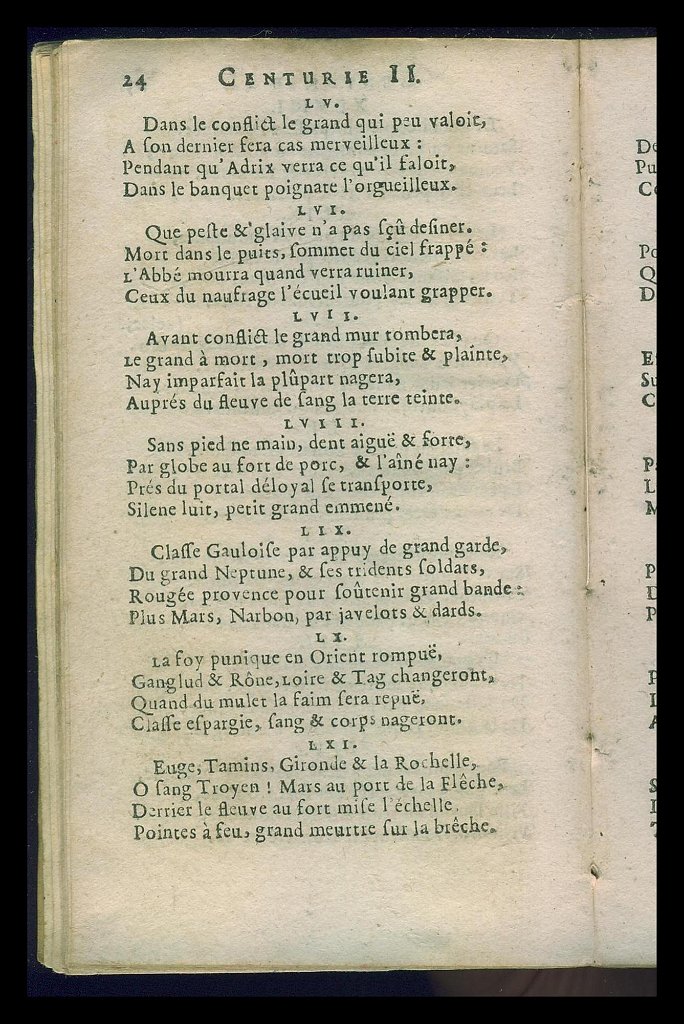 24 CENTURIE II.
LV.
Dans le conflict le grand qui peu valoit,
A ſon dernier fera cas merveilleux :
Pendant qu'Adrix verra ce qu'il faloit,
Dans le banquet poignate l'orgueilleux.
LVI.
Que peſte & glaive n'a pas ſçû definer.
Mort dans le puits, ſommet du ciel frappé :
L'Abbé mourra quand verra ruiner,
Ceux du naufrage l'écueil voulant grapper.
LVII.
Avant conflict le grand mur tombera,
Le grand à mort, mort trop ſubite & plainte,
Nay imparfait la plûpart nagera,
Auprés du fleuve de ſang la terre teinte.
LVIII.
Sans pied ne main, dent aiguë & forte,
Par globe au fort de porc, & l'aîné nay :
Prés du portal déloyal ſe tranſporte,
Silene luit, petit grand emmené.
LIX.
Claſſe Gauloiſe par appuy de grand garde,
Du grand Neptune, & ſes tridents ſoldats,
Rougée provence pour ſoûtenir grand bande :
Plus Mars, Narbon, par javelots & dards.
LX.
La foy punique en Orient rompuë,
Ganglud & Rône, Loire & Tag changeront,
Quand du mulet la faim ſera repuë,
Claſſe eſpargie, ſang & corps nageront.
LXI.
Euge, Tamins, Gironde & la Rochelle,
O ſang Troyen ! Mars au port de la Flêche,
Derrier le fleuve au fort miſe l'échelle,
Pointes à feu, grand meurtre ſur la brêche.